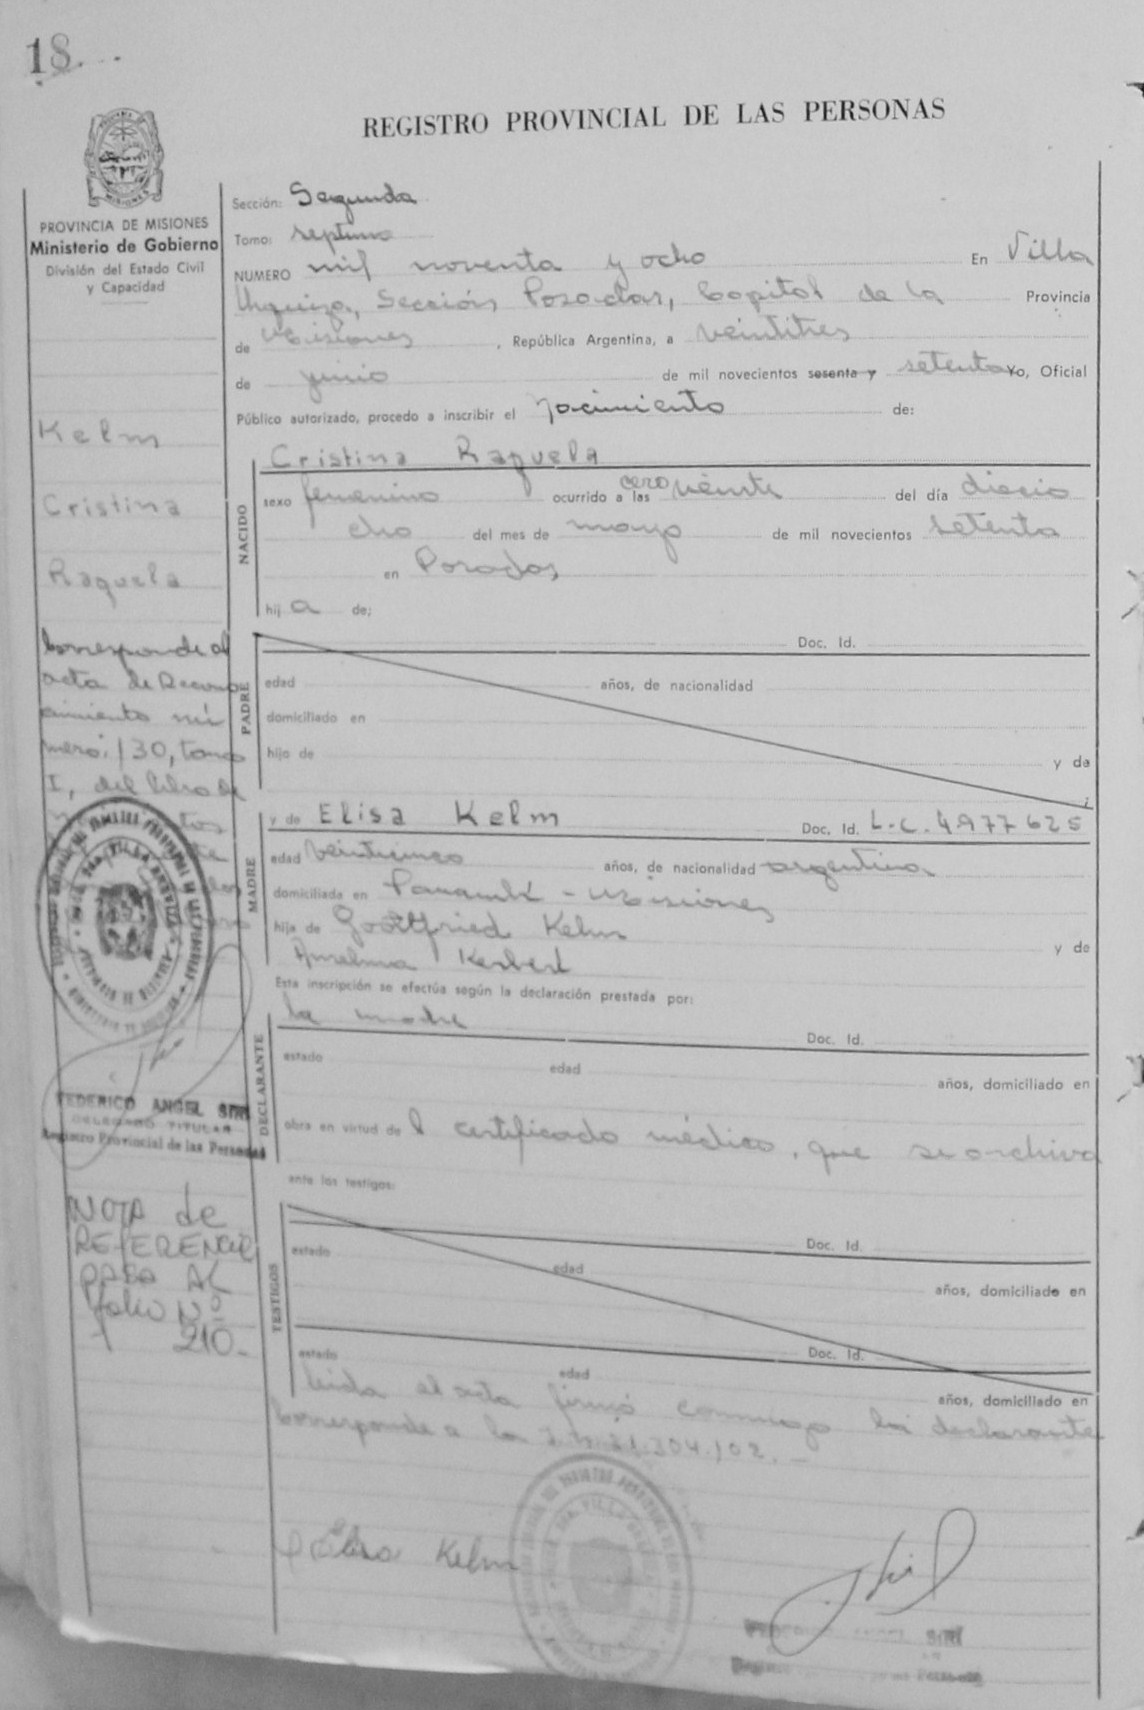 18.
REGISTRO PROVINCIAL DE LAS PERSONAS
PROVINCIA DE MISIONES
Ministerio de Gobierno
División del Estado Civil
y Capacidad
Kelm
Cristina
Raquela
Corresponde al
acta de Recono
cimiento nú
mero: 130, tomo
I, del libro de
FEDERICO ANGEL SIRI
DELEGADO TITULAR
Registro Provincial de las Personas
NOTA de
REFERENCIA
PASA AL
folio Nº
210.-
Sección: Segunda
Tomo: septimo
NUMERO mil noventa y ocho En Villa
Urquiza, Sección Posadas, Capital de la Provincia
de Misiones, República Argentina, a veintitres
de junio de mil novecientos sesenta y setenta Yo, Oficial
Público autorizado, procedo a inscribir el nacimiento de:
NACIDO
Cristina Raquela
sexo femenino ocurrido a las cero veinte del día diecio
cho del mes de mayo de mil novecientos setenta
en Posadas
hij a de;
PADRE
Doc. Id.
edad años, de nacionalidad
domiciliado en
hijo de y de
MADRE
y de Elisa Kelm Doc. Id. L.C. 4977625
edad veinticinco años, de nacionalidad argentina
domiciliada en Panambí - Misiones
hija de Gottfried Kelm y de
Anselma Kerbert
Esta inscripción se efectúa según la declaración prestada por:
DECLARANTE
la madre Doc. Id.
estado edad años, domiciliado en
obra en virtud de l certificado médico, que se archiva
ante los testigos:
TESTIGOS
Doc. Id.
estado edad años, domiciliado en
Doc. Id.
estado edad años, domiciliado en
leida el acta firmó conmigo la declarante
Corresponde a la 21.304.102.-
Elisa Kelm
SIRI